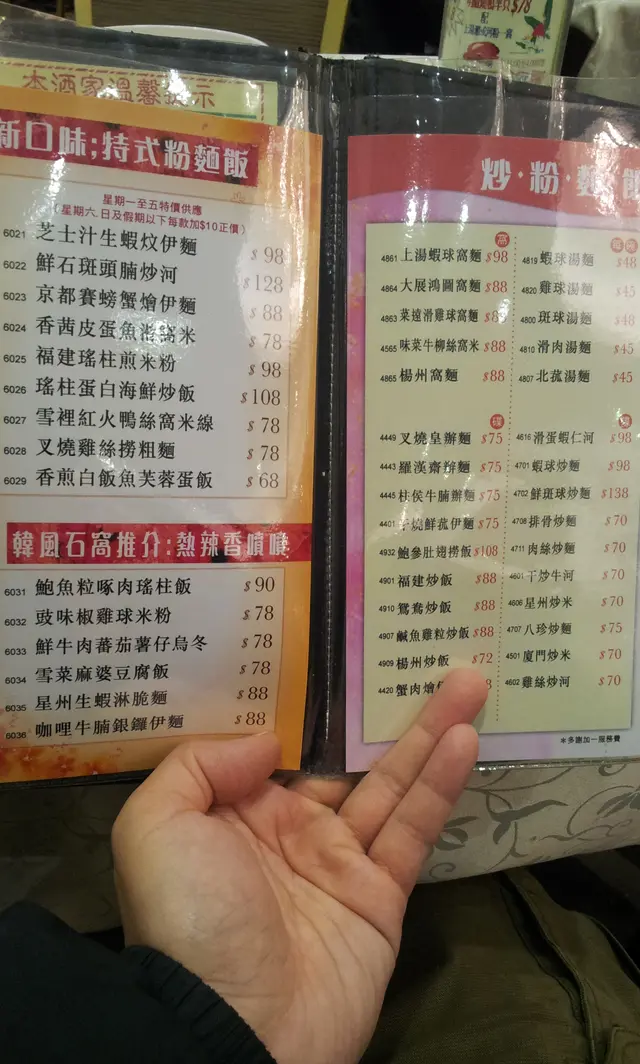 本酒家溫馨提示
$78
配
新口味;特式粉麵飯
星期一至五特價供應
(星期六.日及假期以下每款加$10正價)
6021 芝士汁生蝦炆伊麵 $98
6022 鮮石斑頭腩炒河 $128
6023 京都賽螃蟹燴伊麵 $88
6024 香茜皮蛋魚湯窩米 $78
6025 福建瑤柱煎米粉 $98
6026 瑤柱蛋白海鮮炒飯 $108
6027 雪裡紅火鴨絲窩米線 $78
6028 叉燒雞絲撈粗麵 $78
6029 香煎白飯魚芙蓉蛋飯 $68
韓風石窩推介:熱辣香噴噴
6031 鮑魚粒啄肉瑤柱飯 $90
6032 豉味椒雞球米粉 $78
6033 鮮牛肉蕃茄薯仔烏冬 $78
6034 雪菜麻婆豆腐飯 $78
6035 星州生蝦淋脆麵 $88
6036 咖哩牛腩銀鑼伊麵 $88
炒·粉·麵
窩
4861 上湯蝦球窩麵 $98
4864 大展鴻圖窩麵 $88
4863 菜遠滑雞球窩麵
4565 味菜牛柳絲窩米 $88
4865 楊州窩麵 $88
4449 叉燒皇辦麵 $75
4443 羅漢齋辦麵 $75
4445 柱侯牛腩辦麵 $75
4401 干燒鮮菰伊麵 $75
4932 鮑參肚翅撈飯 $108
4901 福建炒飯 $88
4910 鴛鴦炒飯 $88
4907 鹹魚雞粒炒飯 $88
4909 楊州炒飯 $72
4420 蟹肉燴
4819 蝦球湯麵 $48
4820 雞球湯麵 $45
4800 斑球湯麵 $48
4810 滑肉湯麵 $45
4807 北菰湯麵 $45
4616 滑蛋蝦仁河 $98
4701 蝦球炒麵 $98
4702 鮮斑球炒麵 $138
4708 排骨炒麵 $70
4711 肉絲炒麵 $70
4601 干炒牛河 $70
4606 星州炒米 $70
4707 八珍炒麵 $75
4501 廈門炒米 $70
4602 雞絲炒河 $70
*多謝加一服務費